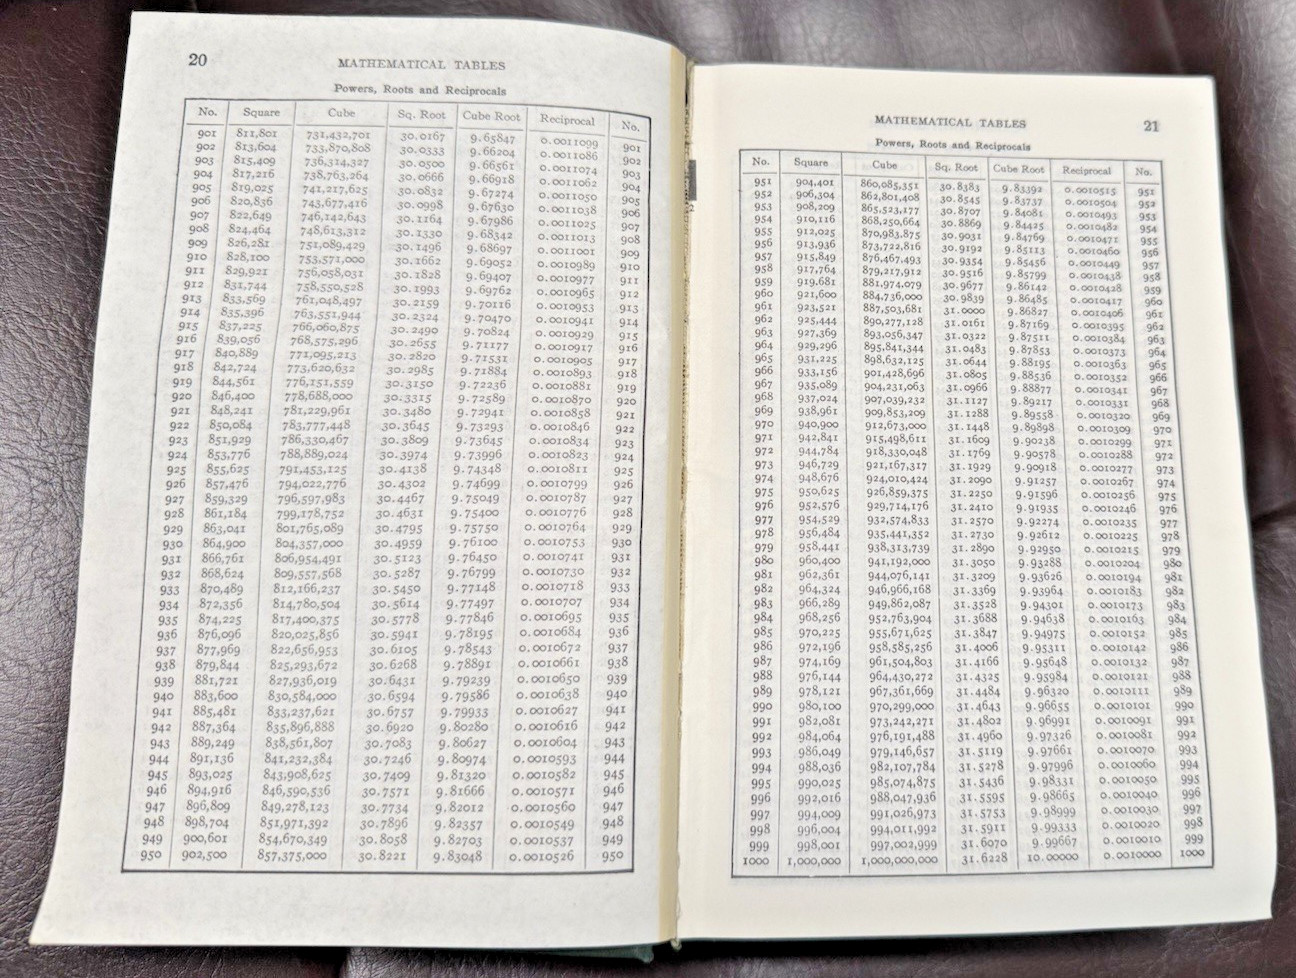 20
MATHEMATICAL TABLES
Powers, Roots and Reciprocals
No. Square Cube Sq. Root Cube Root Reciprocal No.
901 811,801 731,432,701 30.0167 9.65847 0.0011099 901
902 813,604 733,870,808 30.0333 9.66204 0.0011086 902
903 815,409 736,314,327 30.0500 9.66561 0.0011074 903
904 817,216 738,763,264 30.0666 9.66918 0.0011062 904
905 819,025 741,217,625 30.0832 9.67274 0.0011050 905
906 820,836 743,677,416 30.0998 9.67630 0.0011038 906
907 822,649 746,142,643 30.1164 9.67986 0.0011025 907
908 824,464 748,613,312 30.1330 9.68342 0.0011013 908
909 826,281 751,089,429 30.1496 9.68697 0.0011001 909
910 828,100 753,571,000 30.1662 9.69052 0.0010989 910
911 829,921 756,058,031 30.1828 9.69407 0.0010977 911
912 831,744 758,550,528 30.1993 9.69762 0.0010965 912
913 833,569 761,048,497 30.2159 9.70116 0.0010953 913
914 835,396 763,551,944 30.2324 9.70470 0.0010941 914
915 837,225 766,060,875 30.2490 9.70824 0.0010929 915
916 839,056 768,575,296 30.2655 9.71177 0.0010917 916
917 840,889 771,095,213 30.2820 9.71531 0.0010905 917
918 842,724 773,620,632 30.2985 9.71884 0.0010893 918
919 844,561 776,151,559 30.3150 9.72236 0.0010881 919
920 846,400 778,688,000 30.3315 9.72589 0.0010870 920
921 848,241 781,229,961 30.3480 9.72941 0.0010858 921
922 850,084 783,777,448 30.3645 9.73293 0.0010846 922
923 851,929 786,330,467 30.3809 9.73645 0.0010834 923
924 853,776 788,889,024 30.3974 9.73996 0.0010823 924
925 855,625 791,453,125 30.4138 9.74348 0.0010811 925
926 857,476 794,022,776 30.4302 9.74699 0.0010799 926
927 859,329 796,597,983 30.4467 9.75049 0.0010787 927
928 861,184 799,178,752 30.4631 9.75400 0.0010776 928
929 863,041 801,765,089 30.4795 9.75750 0.0010764 929
930 864,900 804,357,000 30.4959 9.76100 0.0010753 930
931 866,761 806,954,491 30.5123 9.76450 0.0010741 931
932 868,624 809,557,568 30.5287 9.76799 0.0010730 932
933 870,489 812,166,237 30.5450 9.77148 0.0010718 933
934 872,356 814,780,504 30.5614 9.77497 0.0010707 934
935 874,225 817,400,375 30.5778 9.77846 0.0010695 935
936 876,096 820,025,856 30.5941 9.78195 0.0010684 936
937 877,969 822,656,953 30.6105 9.78543 0.0010672 937
938 879,844 825,293,672 30.6268 9.78891 0.0010661 938
939 881,721 827,936,019 30.6431 9.79239 0.0010650 939
940 883,600 830,584,000 30.6594 9.79586 0.0010638 940
941 885,481 833,237,621 30.6757 9.79933 0.0010627 941
942 887,364 835,896,888 30.6920 9.80280 0.0010616 942
943 889,249 838,561,807 30.7083 9.80627 0.0010604 943
944 891,136 841,232,384 30.7246 9.80974 0.0010593 944
945 893,025 843,908,625 30.7409 9.81320 0.0010582 945
946 894,916 846,590,536 30.7571 9.81666 0.0010571 946
947 896,809 849,278,123 30.7734 9.82012 0.0010560 947
948 898,704 851,971,392 30.7896 9.82357 0.0010549 948
949 900,601 854,670,349 30.8058 9.82703 0.0010537 949
950 902,500 857,375,000 30.8221 9.83048 0.0010526 950
MATHEMATICAL TABLES
21
Powers, Roots and Reciprocals
No. Square Cube Sq. Root Cube Root Reciprocal No.
951 904,401 860,085,351 30.8383 9.83392 0.0010515 951
952 906,304 862,801,408 30.8545 9.83737 0.0010504 952
953 908,209 865,523,177 30.8707 9.84081 0.0010493 953
954 910,116 868,250,664 30.8869 9.84425 0.0010482 954
955 912,025 870,983,875 30.9031 9.84769 0.0010471 955
956 913,936 873,722,816 30.9192 9.85113 0.0010460 956
957 915,849 876,467,493 30.9354 9.85456 0.0010449 957
958 917,764 879,217,912 30.9516 9.85799 0.0010438 958
959 919,681 881,974,079 30.9677 9.86142 0.0010428 959
960 921,600 884,736,000 30.9839 9.86485 0.0010417 960
961 923,521 887,503,681 31.0000 9.86827 0.0010406 961
962 925,444 890,277,128 31.0161 9.87169 0.0010395 962
963 927,369 893,056,347 31.0322 9.87511 0.0010384 963
964 929,296 895,841,344 31.0483 9.87853 0.0010373 964
965 931,225 898,632,125 31.0644 9.88195 0.0010363 965
966 933,156 901,428,696 31.0805 9.88536 0.0010352 966
967 935,089 904,231,063 31.0966 9.88877 0.0010341 967
968 937,024 907,039,232 31.1127 9.89217 0.0010331 968
969 938,961 909,853,209 31.1288 9.89558 0.0010320 969
970 940,900 912,673,000 31.1448 9.89898 0.0010309 970
971 942,841 915,498,611 31.1609 9.90238 0.0010299 971
972 944,784 918,330,048 31.1769 9.90578 0.0010288 972
973 946,729 921,167,317 31.1929 9.90918 0.0010277 973
974 948,676 924,010,424 31.2090 9.91257 0.0010267 974
975 950,625 926,859,375 31.2250 9.91596 0.0010256 975
976 952,576 929,714,176 31.2410 9.91935 0.0010246 976
977 954,529 932,574,833 31.2570 9.92274 0.0010235 977
978 956,484 935,441,352 31.2730 9.92612 0.0010225 978
979 958,441 938,313,739 31.2890 9.92950 0.0010215 979
980 960,400 941,192,000 31.3050 9.93288 0.0010204 980
981 962,361 944,076,141 31.3209 9.93626 0.0010194 981
982 964,324 946,966,168 31.3369 9.93964 0.0010183 982
983 966,289 949,862,087 31.3528 9.94301 0.0010173 983
984 968,256 952,763,904 31.3688 9.94638 0.0010163 984
985 970,225 955,671,625 31.3847 9.94975 0.0010152 985
986 972,196 958,585,256 31.4006 9.95311 0.0010142 986
987 974,169 961,504,803 31.4166 9.95648 0.0010132 987
988 976,144 964,430,272 31.4325 9.95984 0.0010121 988
989 978,121 967,361,669 31.4484 9.96320 0.0010111 989
990 980,100 970,299,000 31.4643 9.96655 0.0010101 990
991 982,081 973,242,271 31.4802 9.96991 0.0010091 991
992 984,064 976,191,488 31.4960 9.97326 0.0010081 992
993 986,049 979,146,657 31.5119 9.97661 0.0010070 993
994 988,036 982,107,784 31.5278 9.97996 0.0010060 994
995 990,025 985,074,875 31.5436 9.98331 0.0010050 995
996 992,016 988,047,936 31.5595 9.98665 0.0010040 996
997 994,009 991,026,973 31.5753 9.98999 0.0010030 997
998 996,004 994,011,992 31.5911 9.99333 0.0010020 998
999 998,001 997,002,999 31.6070 9.99667 0.0010010 999
1000 1,000,000 1,000,000,000 31.6228 10.00000 0.0010000 1000